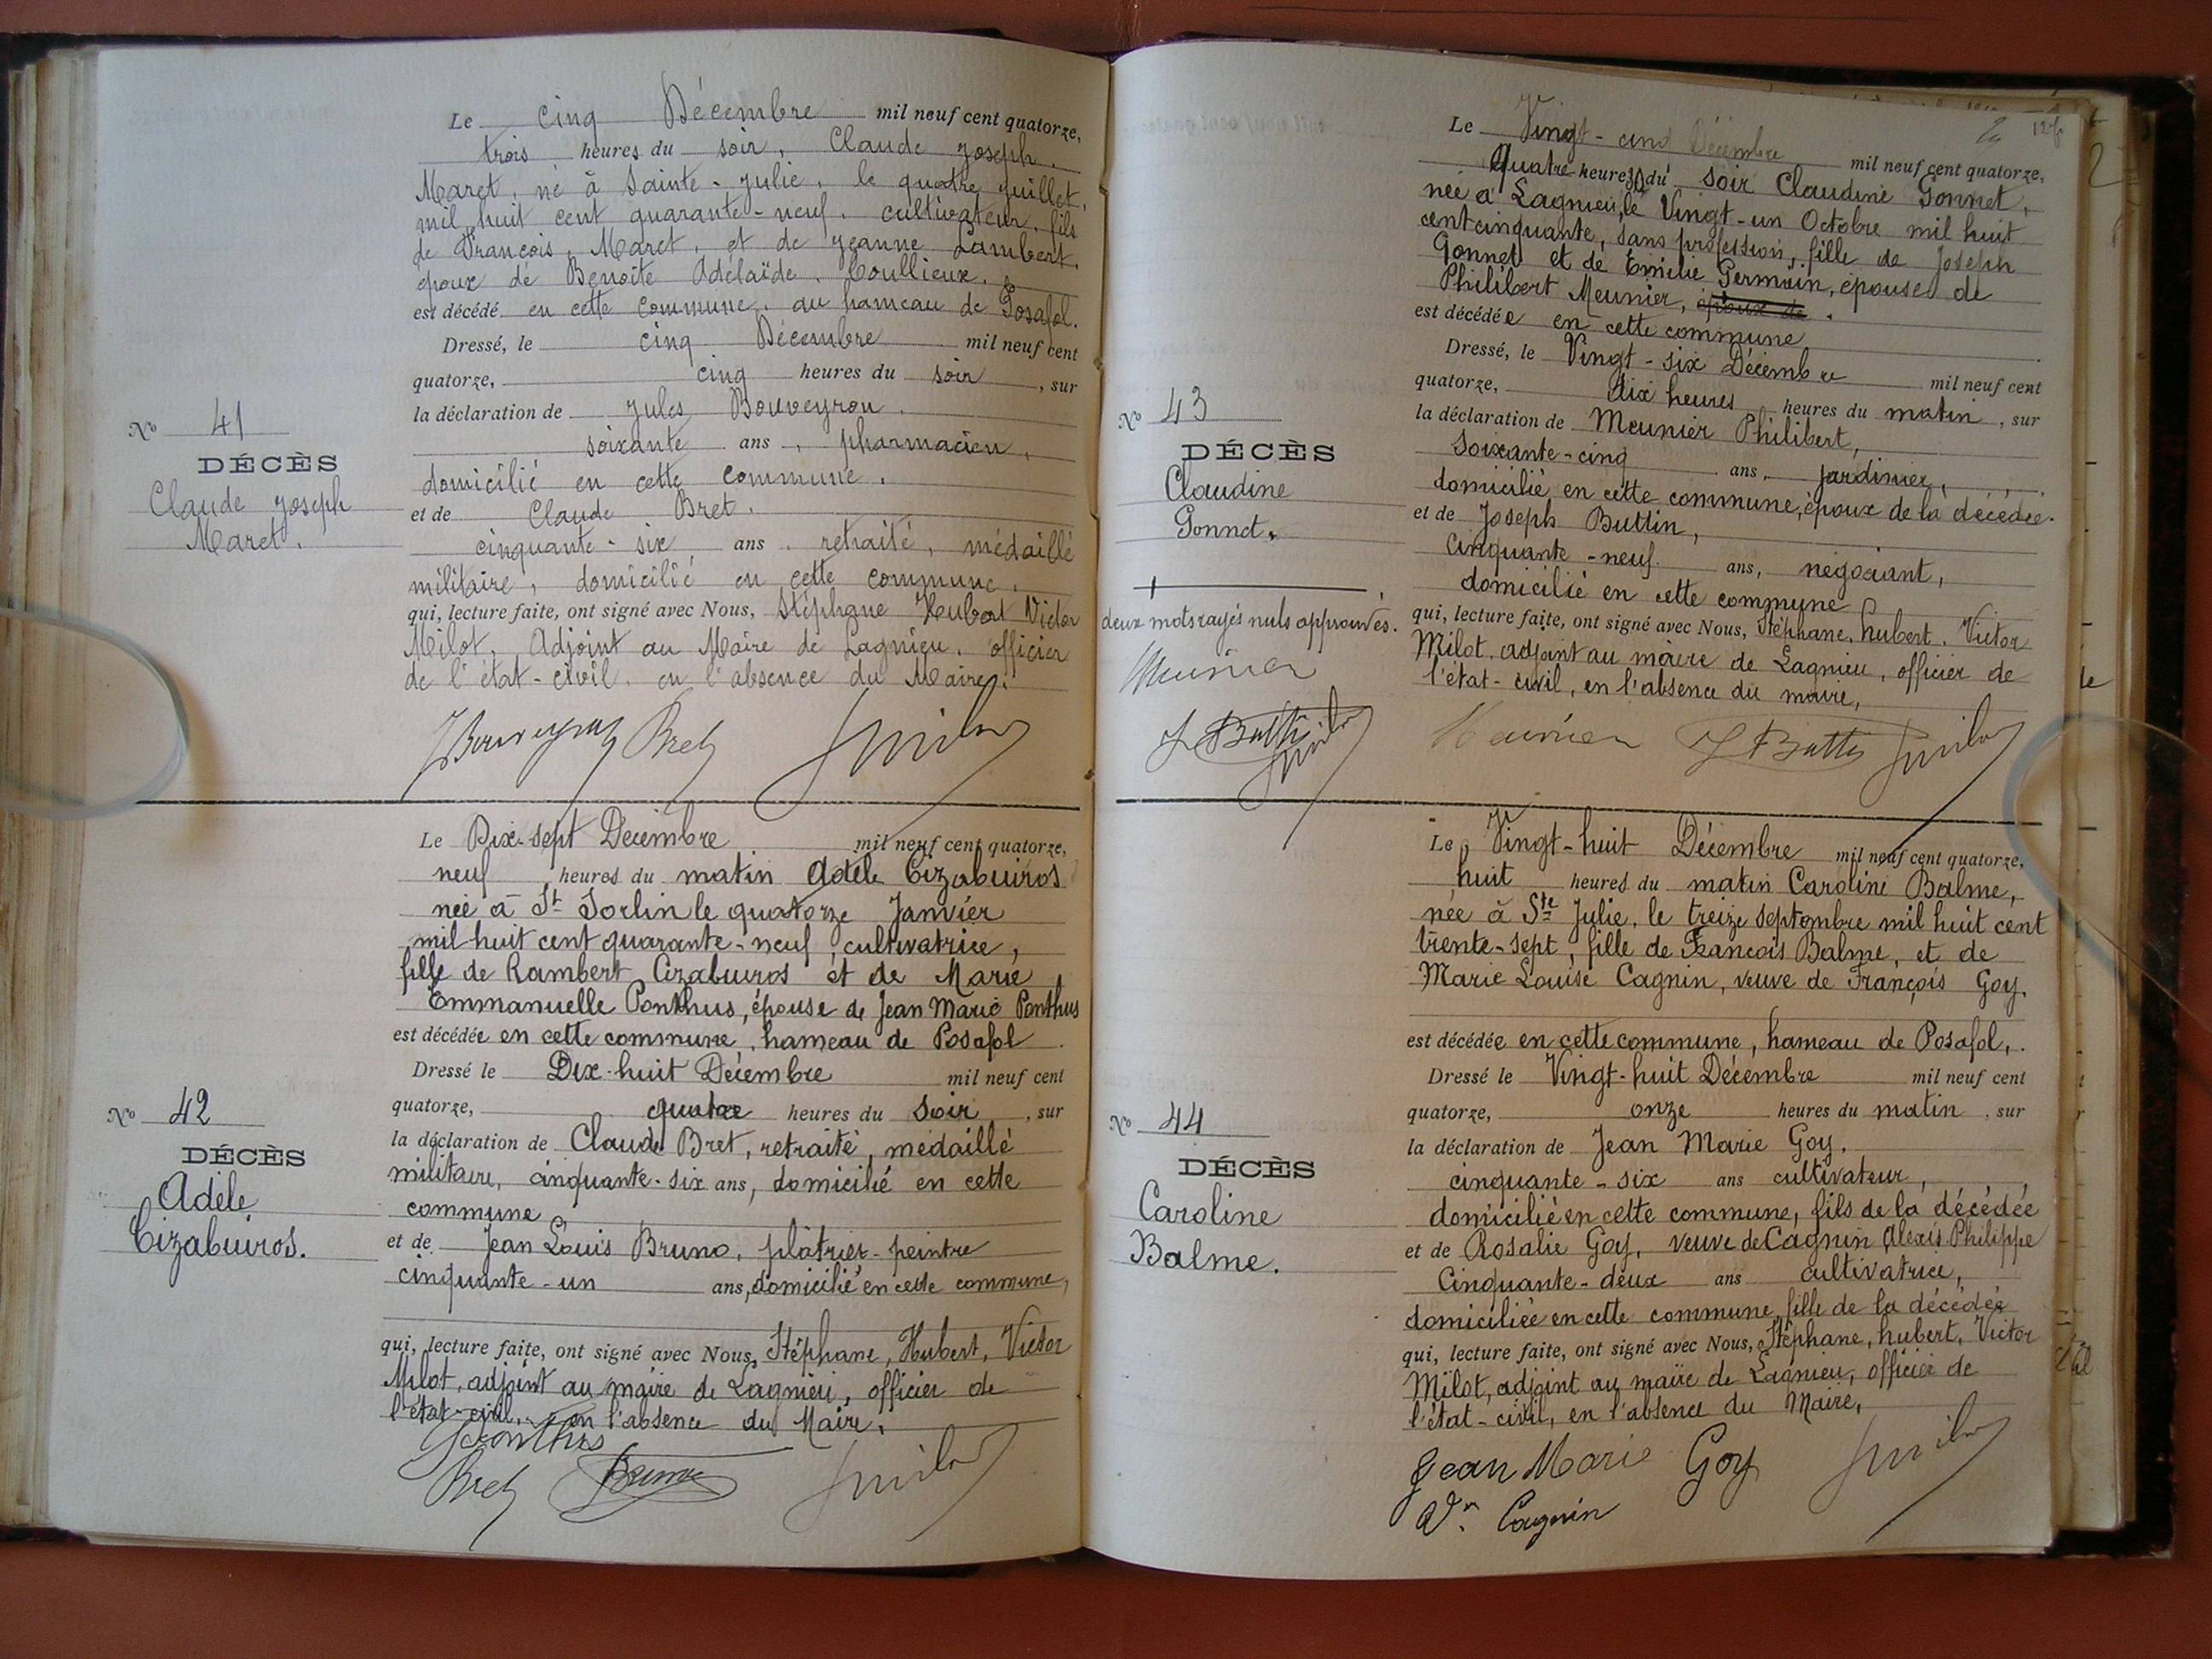 Le cinq Décembre mil neuf cent quatorze,
trois heures du soir, Claude Joseph
Maret, né à Sainte-Julie, le quatre juillet
mil huit cent quarante-neuf, cultivateur, fils
de François Maret, et de Jeanne Lambert,
époux de Benoîte Adélaïde Coullieux,
est décédé en cette commune, au hameau de Posafol.
Dressé, le cinq Décembre mil neuf cent
quatorze, cinq heures du soir, sur
la déclaration de Jules Bouveyron,
soixante ans, pharmacien,
domicilié en cette commune,
et de Claude Bret,
cinquante-six ans, retraité, médaillé
militaire, domicilié en cette commune,
qui, lecture faite, ont signé avec Nous, Stéphane Hubert Victor
Milot, Adjoint au Maire de Lagnieu, officier
de l'état-civil, en l'absence du Maire.
No 41
DÉCÈS
Claude Joseph
Maret.
J Bouveyron Bret
Le Dix-sept Décembre mil neuf cent quatorze,
neuf heures du matin Adèle Cizabuiros
née à St Sorlin le quatorze Janvier
mil huit cent quarante-neuf, cultivatrice,
fille de Rambert Cizabuiros et de Marie
Emmanuelle Ponthus, épouse de Jean Marie Ponthus
est décédée en cette commune, hameau de Posafol.
Dressé le Dix-huit Décembre mil neuf cent
quatorze, quatre heures du soir, sur
la déclaration de Claude Bret, retraité, médaillé
militaire, cinquante-six ans, domicilié en cette
commune
et de Jean Louis Bruno, plâtrier-peintre
cinquante-un ans, domicilié en cette commune,
qui, lecture faite, ont signé avec Nous, Stéphane, Hubert, Victor
Milot, adjoint au maire de Lagnieu, officier de
l'état-civil, en l'absence du Maire,
No 42
DÉCÈS
Adèle
Cizabuiros.
Ponthus
Bret Bruno
Le Vingt-cinq Décembre mil neuf cent quatorze,
Quatre heures du soir Claudine Gonnet,
née à Lagnieu, le Vingt-un Octobre mil huit
cent cinquante, sans profession, fille de Joseph
Gonnet et de Emilie Germain, épouse de
Philibert Meunier, époux de.
est décédée en cette commune
Dressé, le Vingt-six Décembre mil neuf cent
quatorze, dix heures heures du matin, sur
la déclaration de Meunier Philibert,
Soixante-cinq ans, jardinier,
domicilié en cette commune, époux de la décédée.
et de Joseph Buttin,
Cinquante-neuf ans, négociant,
domicilié en cette commune
qui, lecture faite, ont signé avec Nous, Stéphane, hubert, Victor
Milot, adjoint au maire de Lagnieu, officier de
l'état-civil, en l'absence du maire,
No 43
DÉCÈS
Claudine
Gonnet.
deux mots rayés nuls approuvés.
Meunier
J Buttin
Meunier J Buttin
Le Vingt-huit Décembre mil neuf cent quatorze,
huit heures du matin Caroline Balme,
née à Ste Julie, le treize septembre mil huit cent
trente-sept, fille de François Balme, et de
Marie Louise Cagnin, veuve de François Goy.
est décédée en cette commune, hameau de Posafol,.
Dressé le Vingt-huit Décembre mil neuf cent
quatorze, onze heures du matin, sur
la déclaration de Jean Marie Goy.
cinquante-six ans cultivateur,
domicilié en cette commune, fils de la décédée
et de Rosalie Goy, veuve de Cagnin Alexis Philippe
Cinquante-deux ans cultivatrice,
domiciliée en cette commune, fille de la décédée
qui, lecture faite, ont signé avec Nous, Stéphane, hubert, Victor
Milot, adjoint au maire de Lagnieu, officier de
l'état-civil, en l'absence du Maire,
No 44
DÉCÈS
Caroline
Balme.
Jean Marie Goy
Vve Cagnin